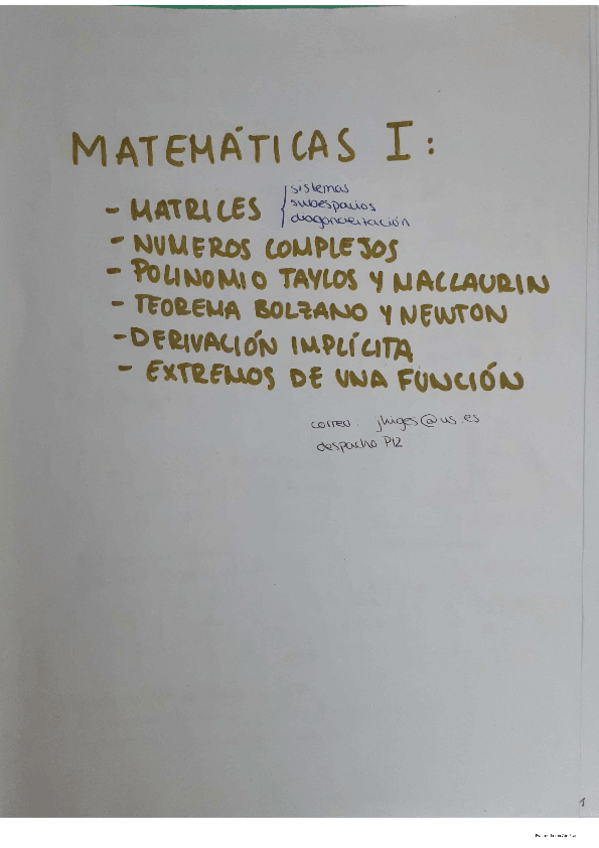 MATEMÁTICAS I:
- MATRICES { sistemas
subespacios
diagonalización
- NUMEROS COMPLEJOS
- POLINOMIO TAYLOS Y MACLAURIN
- TEOREMA BOLZANO Y NEWTON
- DERIVACIÓN IMPLÍCITA
- EXTREMOS DE UNA FUNCIÓN
correo: jluges@us.es
despacho P12
1